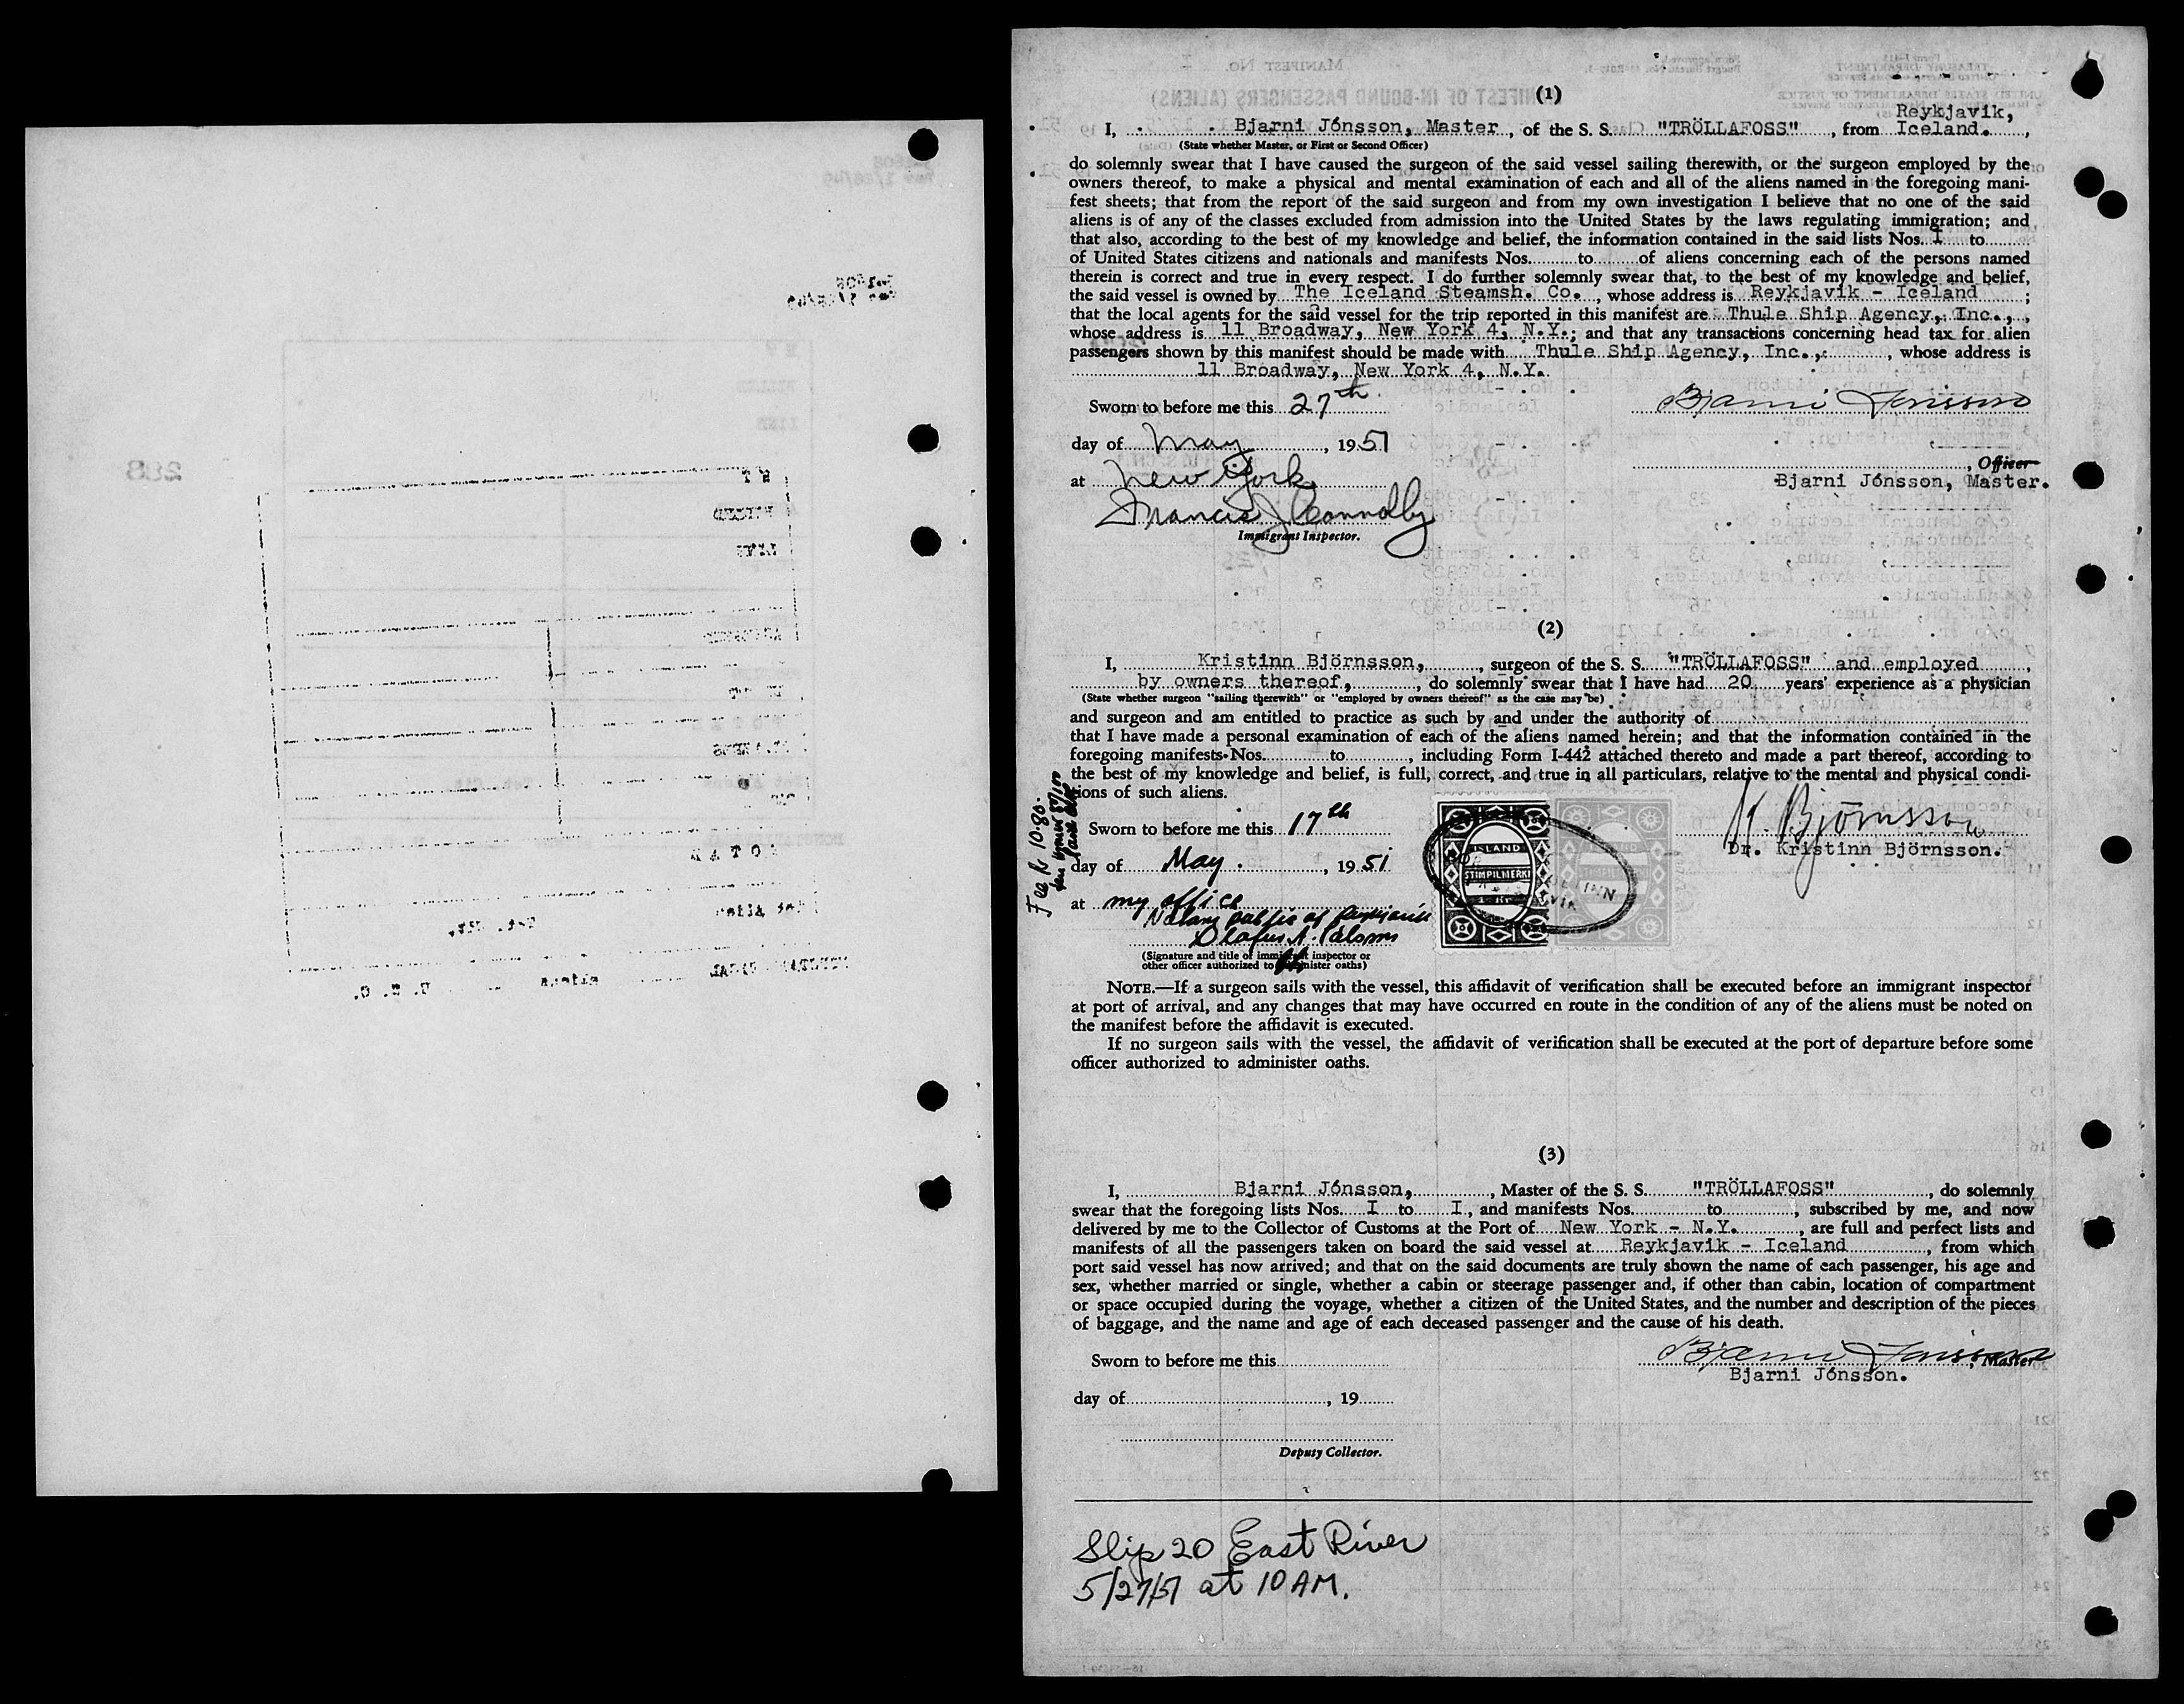 (1)
Reykjavik,
I, Bjarni Jónsson, Master, of the S. S. "TRÖLLAFOSS", from Iceland.,
(State whether Master, or First or Second Officer)
do solemnly swear that I have caused the surgeon of the said vessel sailing therewith, or the surgeon employed by the
owners thereof, to make a physical and mental examination of each and all of the aliens named in the foregoing mani-
fest sheets; that from the report of the said surgeon and from my own investigation I believe that no one of the said
aliens is of any of the classes excluded from admission into the United States by the laws regulating immigration; and
that also, according to the best of my knowledge and belief, the information contained in the said lists Nos. I to
of United States citizens and nationals and manifests Nos. to of aliens concerning each of the persons named
therein is correct and true in every respect. I do further solemnly swear that, to the best of my knowledge and belief,
the said vessel is owned by The Iceland Steamsh. Co., whose address is Reykjavik - Iceland ;
that the local agents for the said vessel for the trip reported in this manifest are Thule Ship Agency, Inc.,,
whose address is 11 Broadway, New York 4, N.Y.; and that any transactions concerning head tax for alien
passengers shown by this manifest should be made with Thule Ship Agency, Inc., , whose address is
11 Broadway, New York 4, N.Y.
Sworn to before me this 27th
Bjarni Jónsson
day of May, 1951
, Officer
at New York
Bjarni Jónsson, Master.
Francis J Connolly
Immigrant Inspector.
(2)
I, Kristinn Björnsson, , surgeon of the S. S. "TRÖLLAFOSS" and employed ,
by owners thereof, , do solemnly swear that I have had 20 years' experience as a physician
(State whether surgeon "sailing therewith" or "employed by owners thereof" as the case may be)
and surgeon and am entitled to practice as such by and under the authority of
that I have made a personal examination of each of the aliens named herein; and that the information contained in the
foregoing manifests Nos. to , including Form I-442 attached thereto and made a part thereof, according to
the best of my knowledge and belief, is full, correct, and true in all particulars, relative to the mental and physical condi-
tions of such aliens.
Fee Kr 10.80.
Sworn to before me this 17th
K. Björnsson
Dr. Kristinn Björnsson.
day of May. , 1951
ISLAND
STIMPILMERKI
at my office
Notary public of Reykjavik
(Signature and title of immigrant inspector or
other officer authorized to administer oaths)
NOTE.—If a surgeon sails with the vessel, this affidavit of verification shall be executed before an immigrant inspector
at port of arrival, and any changes that may have occurred en route in the condition of any of the aliens must be noted on
the manifest before the affidavit is executed.
If no surgeon sails with the vessel, the affidavit of verification shall be executed at the port of departure before some
officer authorized to administer oaths.
(3)
I, Bjarni Jónsson, , Master of the S. S. "TRÖLLAFOSS" , do solemnly
swear that the foregoing lists Nos. I to I, and manifests Nos. to , subscribed by me, and now
delivered by me to the Collector of Customs at the Port of New York - N.Y. , are full and perfect lists and
manifests of all the passengers taken on board the said vessel at Reykjavik - Iceland , from which
port said vessel has now arrived; and that on the said documents are truly shown the name of each passenger, his age and
sex, whether married or single, whether a cabin or steerage passenger and, if other than cabin, location of compartment
or space occupied during the voyage, whether a citizen of the United States, and the number and description of the pieces
of baggage, and the name and age of each deceased passenger and the cause of his death.
Sworn to before me this
Bjarni Jónsson, Master
Bjarni Jónsson.
day of , 19
Deputy Collector.
Slip 20 East River
5/27/51 at 10 AM.